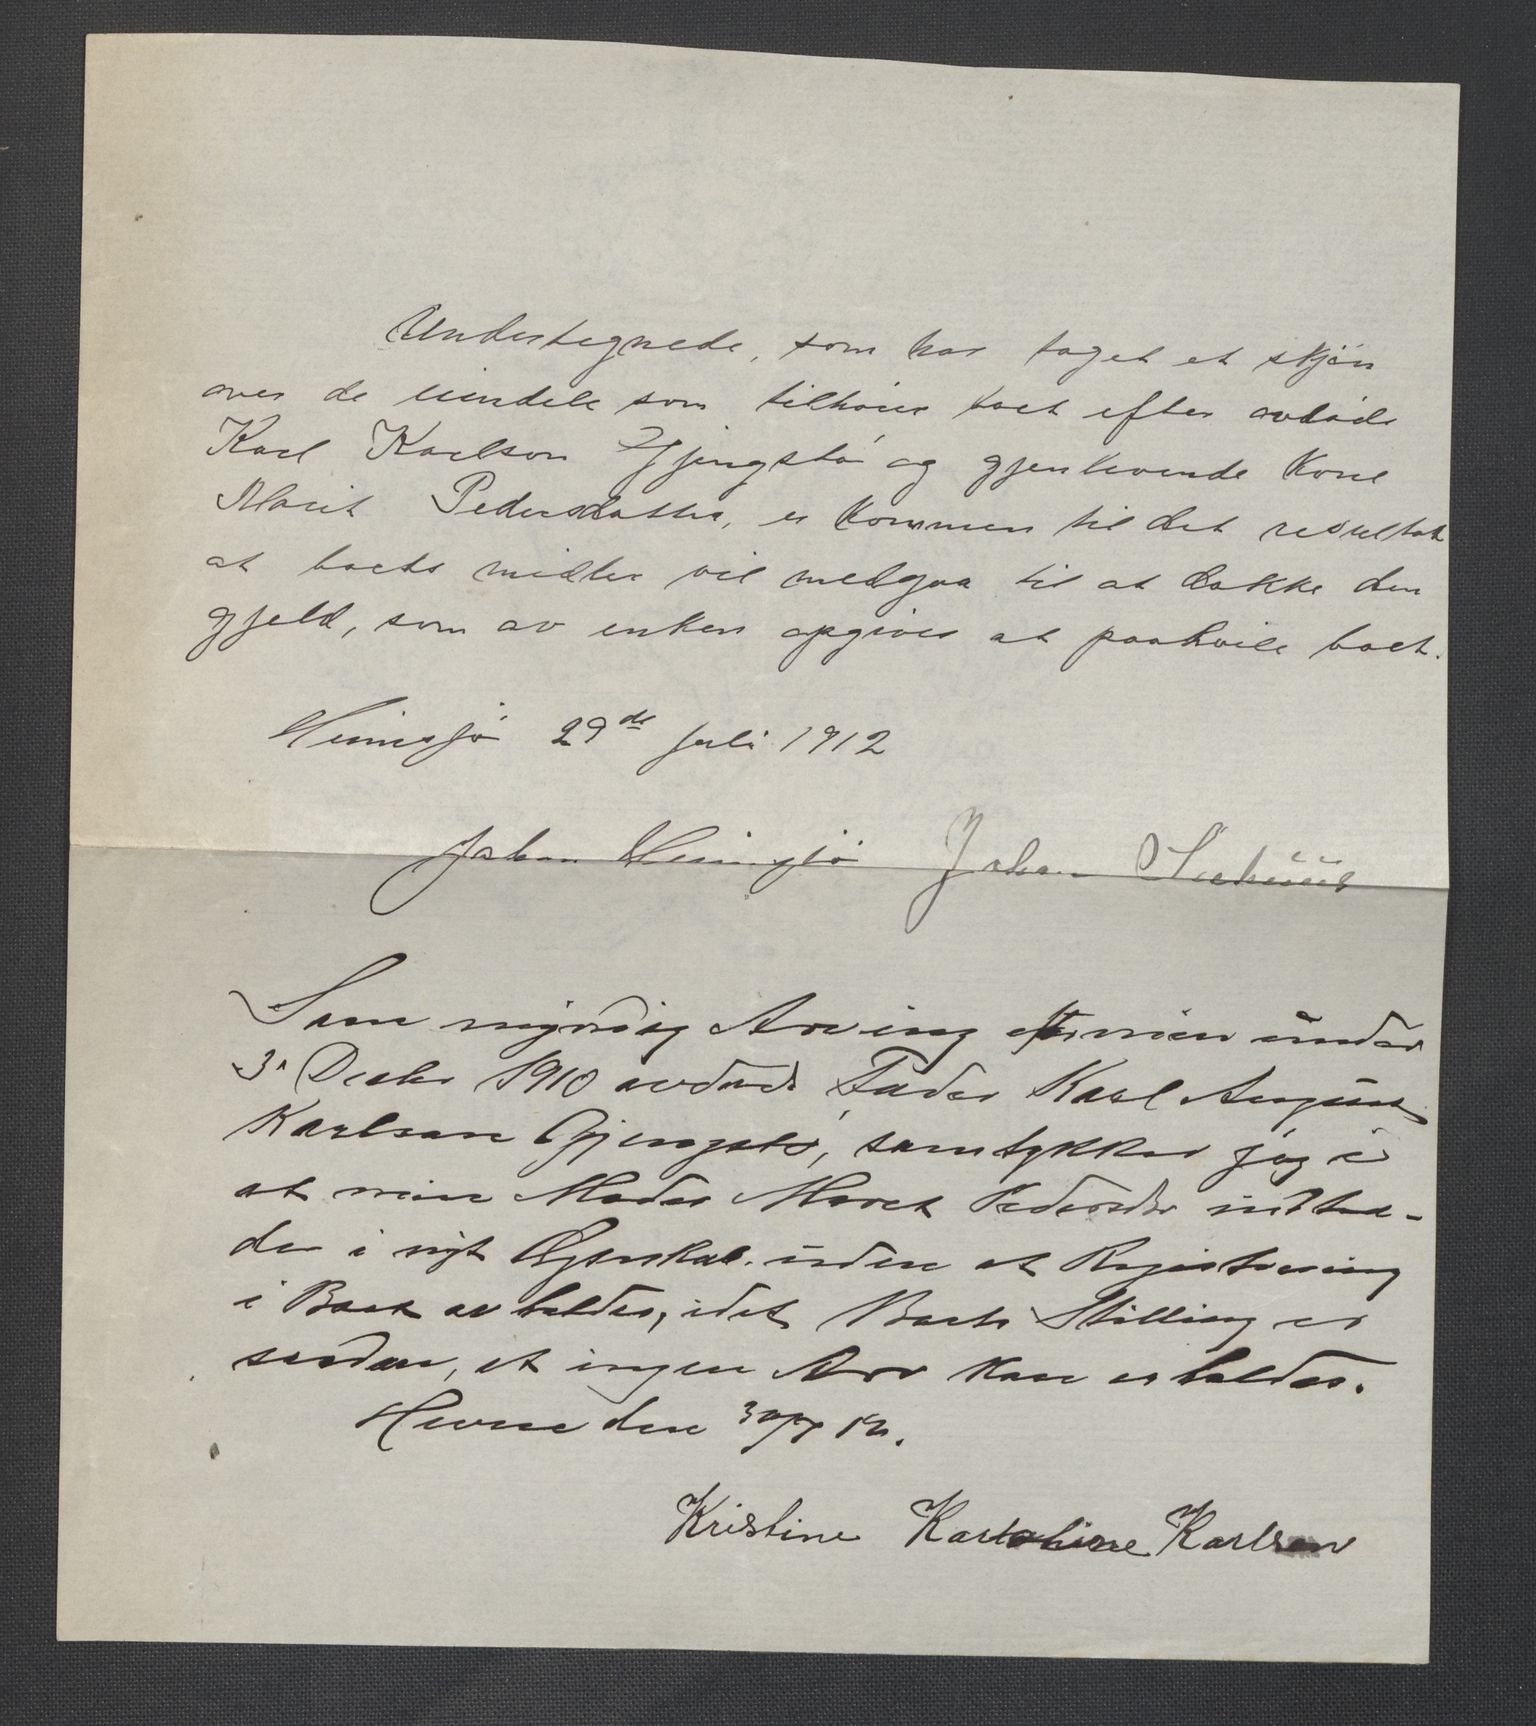 Undertegnede, som har taget et skjön
over de eiendele som tilhörer boet efter avdöde
Karl Karlson Gjengstö og gjenlevende kone
Marit Pedersdatter, er kommen til det resultat
at boets midler vil medgaa til at dække den
gjeld, som av enken opgives at paahvile boet.
Hemsjö 29de juli 1912
Johan Hemsjö Johan
Som myndig Arving efter min under
3. Decbr 1910 avdöde Fader Karl August
Karlsen Gjengstö, samtykker jeg i
at min Moder Maret Pedersdtr indtræ-
der i nyt Ægteskab uden at Registrering
i Boet avholdes, idet Boets Stilling er
saadan, at ingen Arv kan erholdes.
Hevne den 30/7 12.
Kristine Karlsen